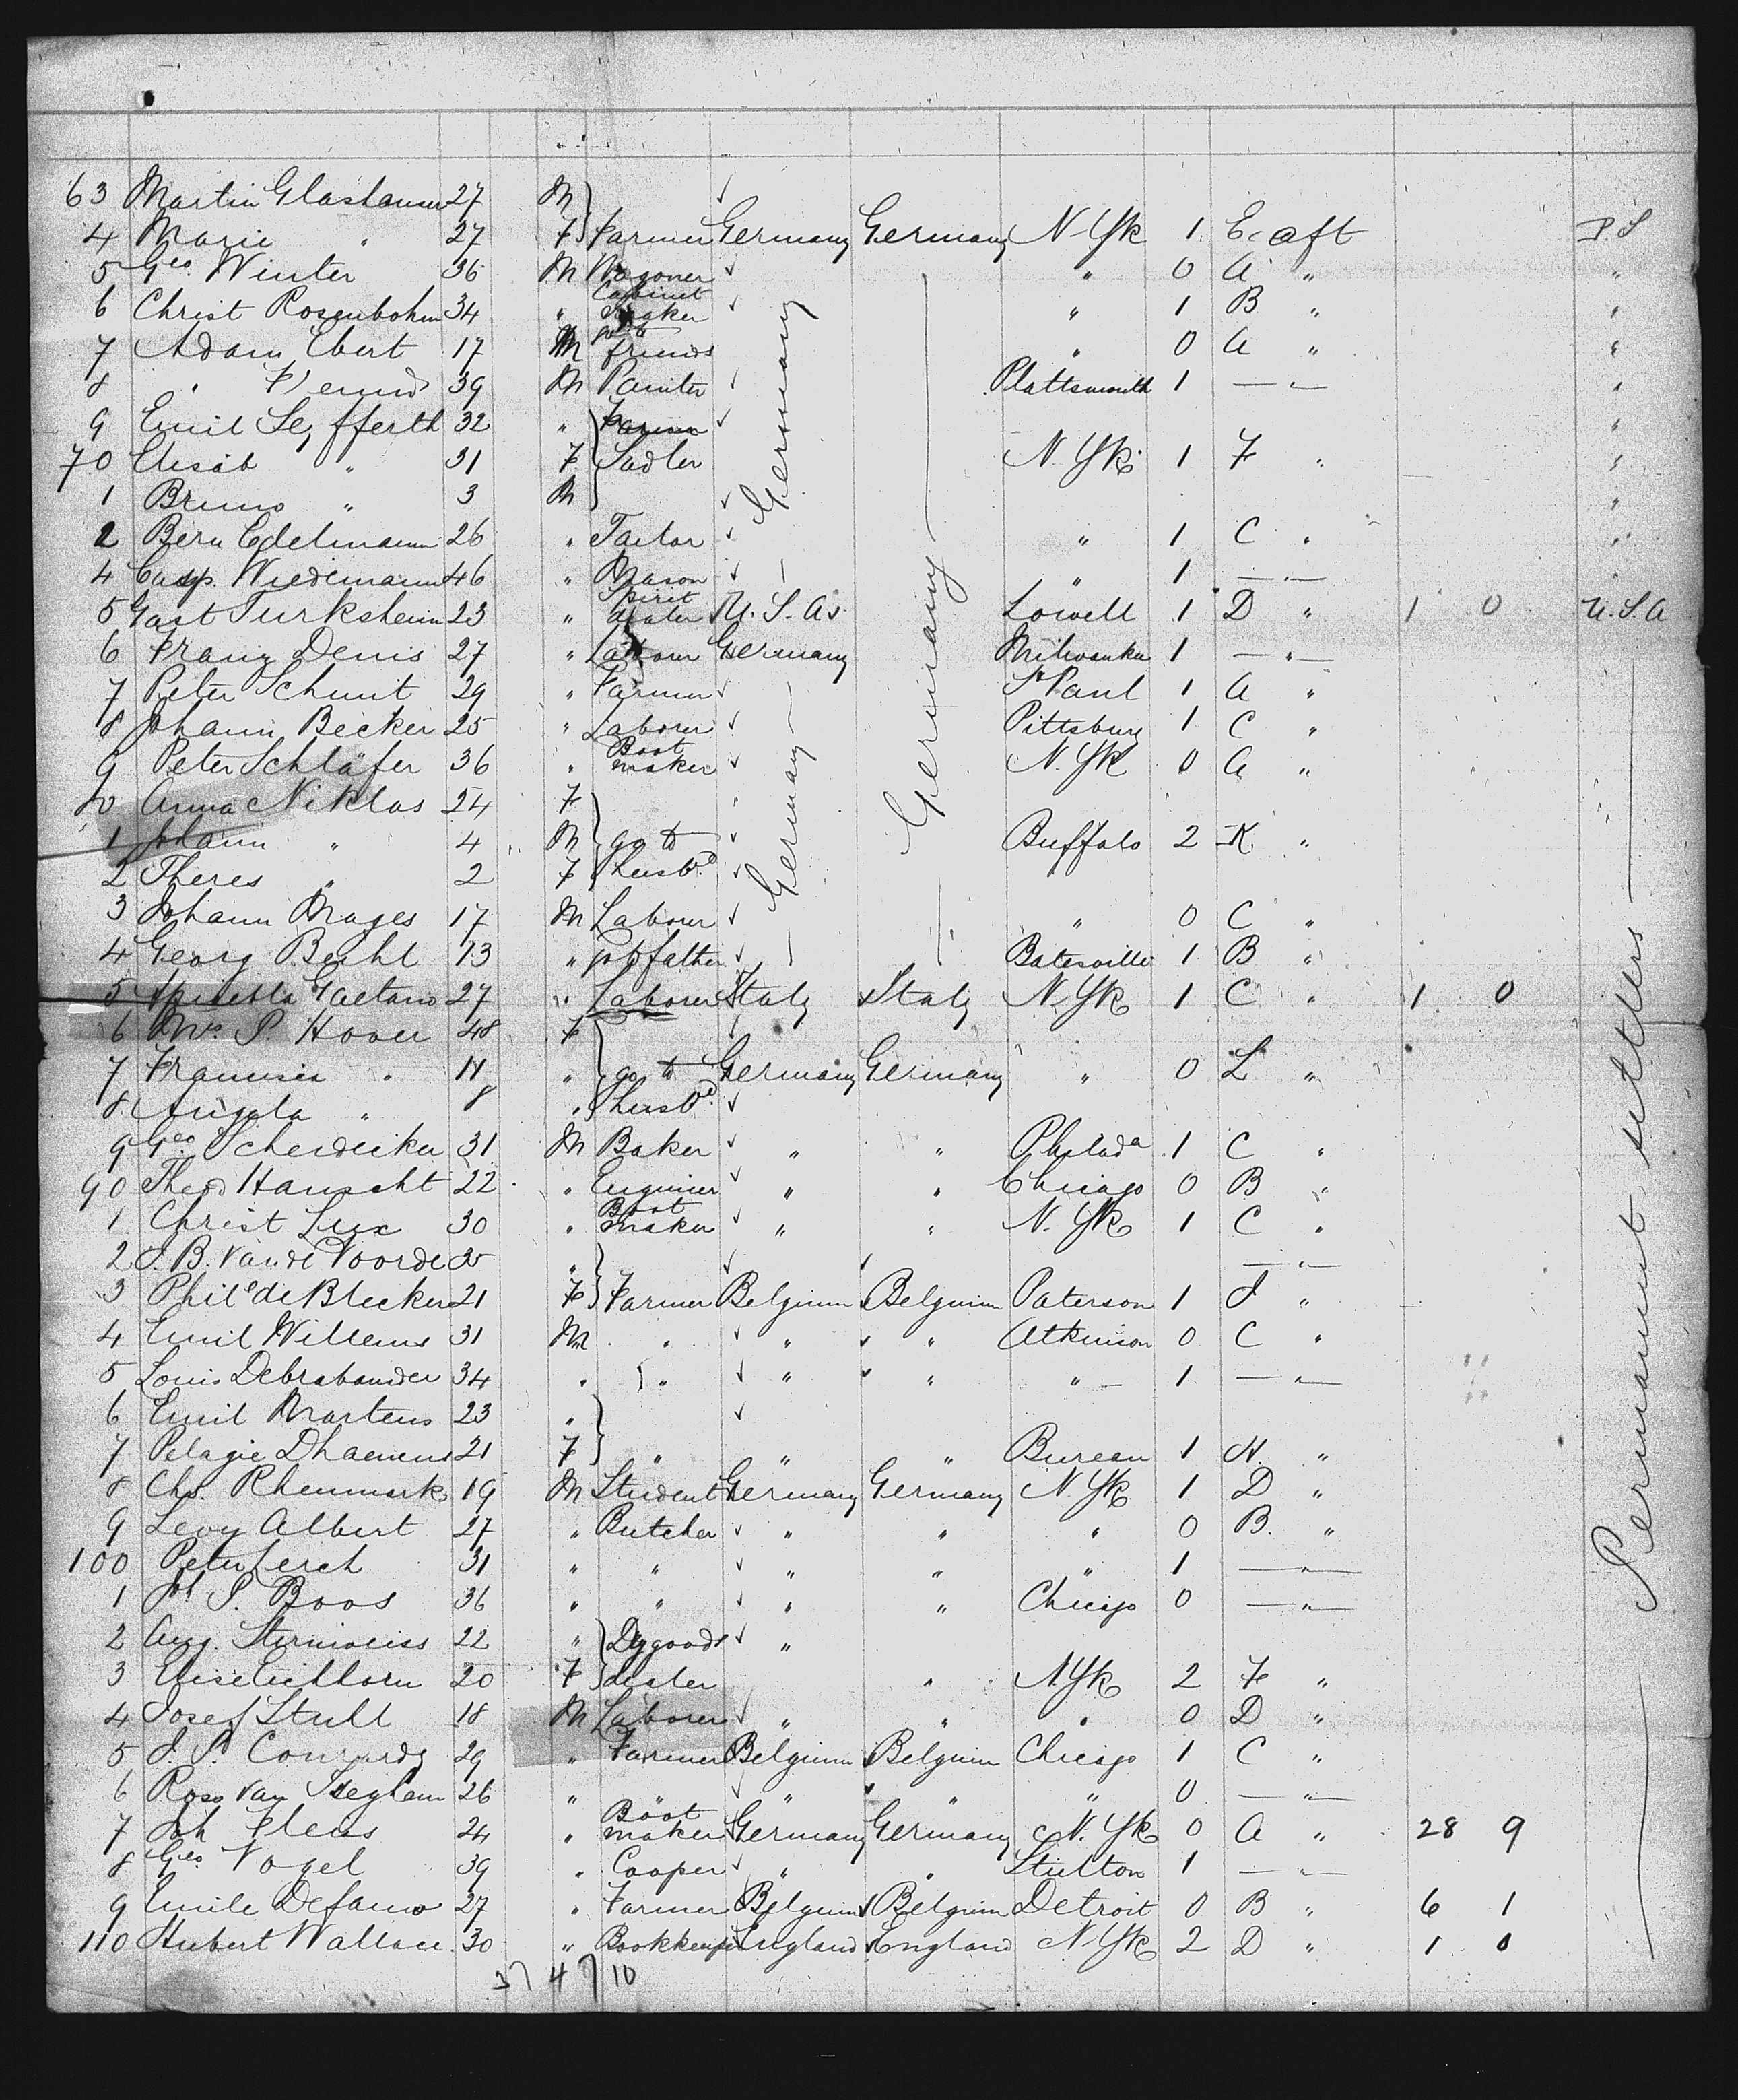 63 Martin Glashauser 27 M
4 Marie " 27 F Farmer Germany Germany N-Yk 1 E. aft P S
5 Geo. Winter 36 M Wagoner " 0 A " "
6 Christ Rosenbohm 34 " Cabinet maker " 1 B " "
7 Adam Ebert 17 M go to friends " 0 A " "
8 " 39 M Painter Plattsmouth 1 — " — "
9 Emil Seyfferth 32 " Farmer "
70 Elisab " 31 F Sadler N. Yk. 1 F " "
1 Bruno " 3 M "
2 Bern Edelmann 26 " Tailor " 1 C " "
4 Casp. Wiedemann 46 " Mason " 1 — " — "
5 Gast Turksheim 23 " Spirit dealer U. S. As. Lowell 1 D " 1 0 U. S. A
6 Franz Denis 27 " Labourer Germany Milwaukee 1 — " —
7 Peter Schmit 29 " Farmer St Paul 1 A "
8 Johann Becker 25 " Laborer Pittsburg 1 C "
9 Peter Schläfer 36 " Boot maker N. Yk 0 A "
80 Anna Niklas 24 F
1 Johann " 4 M go to Buffalo 2 K. "
2 Theres " 2 F husbd
3 Johann Mages 17 M Labour " 0 C "
4 Georg 13 " go to father Batesville 1 B "
5 Gaetano 27 " Labourer Italy Italy N-Yk 1 C " 1 0
6 Mrs. P. Hover 48 F
7 Francisca " 11 " go to Germany Germany " 0 L "
8 Angela " 8 " husbd
9 Geo Scherdecker 31 M Baker " " Philada 1 C "
90 Theod Hauscht 22 " Enginier " " Chicago 0 B "
1 Christ Lux 30 " Boot maker " " N. Yk 1 C "
2 J. B. Van de Voorde 35 " — " —
3 Phile de Bleeker 21 F Farmer Belgium Belgium Paterson 1 J "
4 Emil Willems 31 M " " " Atkinson 0 C "
5 Louis Debrabander 34 " " " " " 1 — " —
6 Emil Martens 23 "
7 Pelagie Dhaemens 21 F " " " Bureau 1 H. "
8 Chs. Rhenmark 19 M Student Germany Germany N. Yk 1 D "
9 Levy Albert 27 " Butcher " " " 0 B. "
100 Peter Lerch 31 " " " " " 1 — " —
1 Joh P. Boos 36 " " " " Chicago 0 — " —
2 Aug. Sternweiss 22 " Drygoods "
3 Elise Eichhorn 20 F dealer " N Yk 2 F "
4 Josef Stuhl 18 M Laborer " " " 0 D "
5 J. P. Conrardy 29 " Farmer Belgium Belgium Chicago 1 C "
6 Ross van Iseghem 26 " " " " " 0 — " —
7 Joh 24 " Boot maker Germany Germany N. Yk 0 A " 28 9
8 Geo. Vogel 39 " Cooper " " Stielton 1 — " —
9 Emile Defauw 27 " Farmer Belgium Belgium Detroit 0 B " 6 1
110 Hubert Wallace 30 " Bookkeeper England England N Yk 2 D " 1 0
37 47 10
Germany
Germany
Germany
Permanent settlers